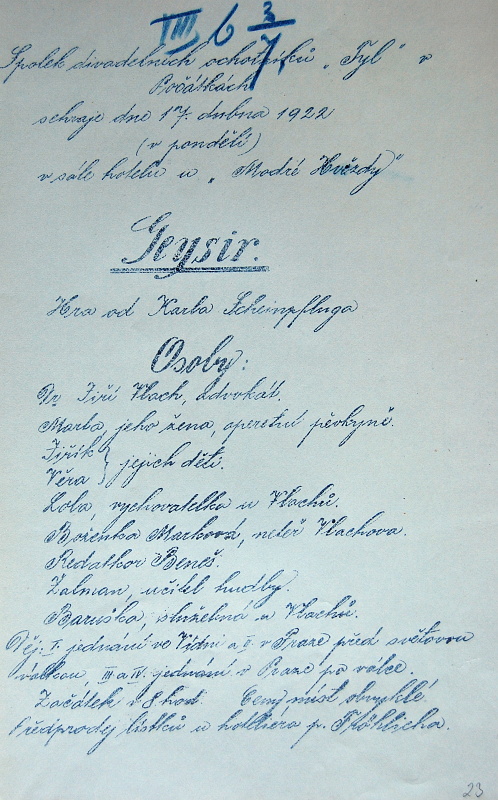 III 6 3/7
Spolek divadelních ochotníků „Tyl“ v
Počátkách
sehraje dne 17. dubna 1922
(v pondělí)
v sále hotelu u „Modré Hvězdy“
Geysir.
Hra od Karla Scheinpfluga
Osoby:
Dr. Jiří Vlach, advokát.
Marta, jeho žena, operetní pěvkyně.
Jiřík
Věra } jejich děti.
Lola, vychovatelka u Vlachů.
Boženka Marková, neteř Vlachova.
Redatkor Beneš.
Zalman, učitel hudby.
Baruška, služebná u Vlachů.
Děj: I. jednání ve Vídni a II. v Praze před světovou
válkou, III a IV. jednání v Praze po válce.
Začátek v 8 hod. Ceny míst obvyklé.
Předprodej lístků u hoteliera p. Fröhlicha.
23